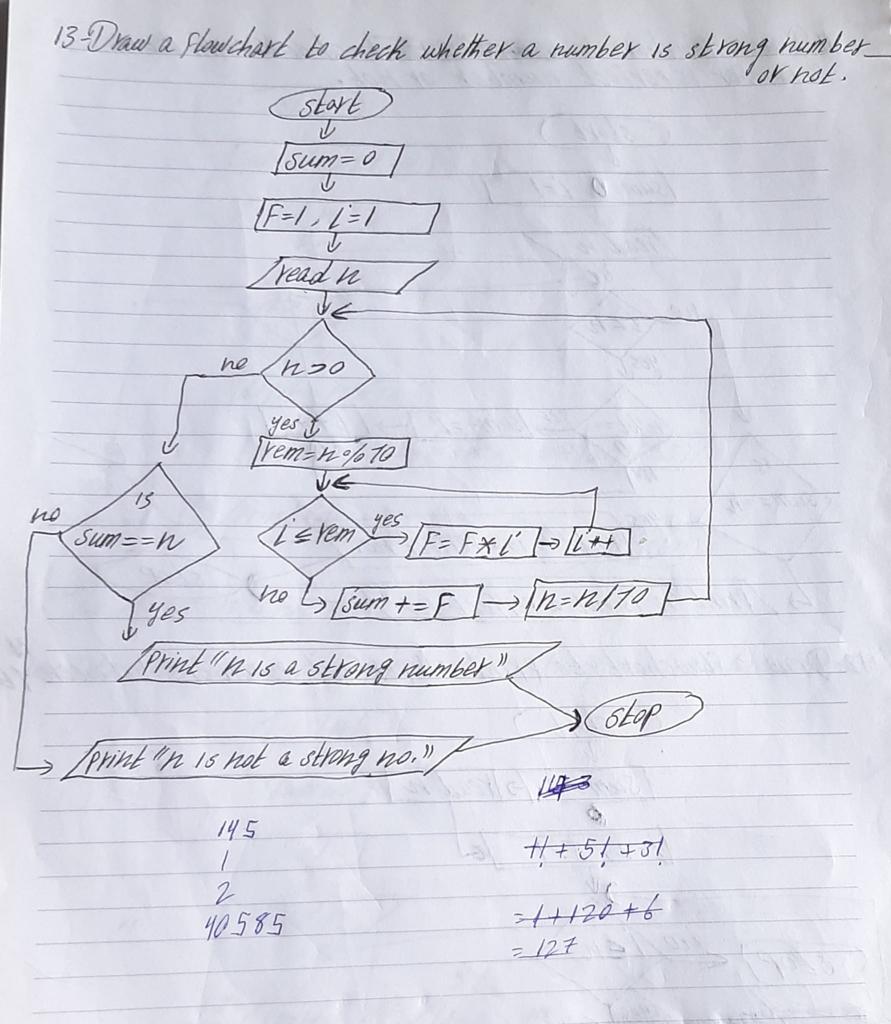 13-Draw a flowchart to check whether a number is strong number
or not.
start
sum=0
F=1, i=1
read n
n>0
no
yes
rem=n%10
is
sum==n
no
yes
i≤rem
yes
F=F*i
i++
no
sum+=F
n=n/10
print "n is a strong number"
stop
print "n is not a strong no."
145
1
2
40585
1!+5!+3!
=1+120+6
=127